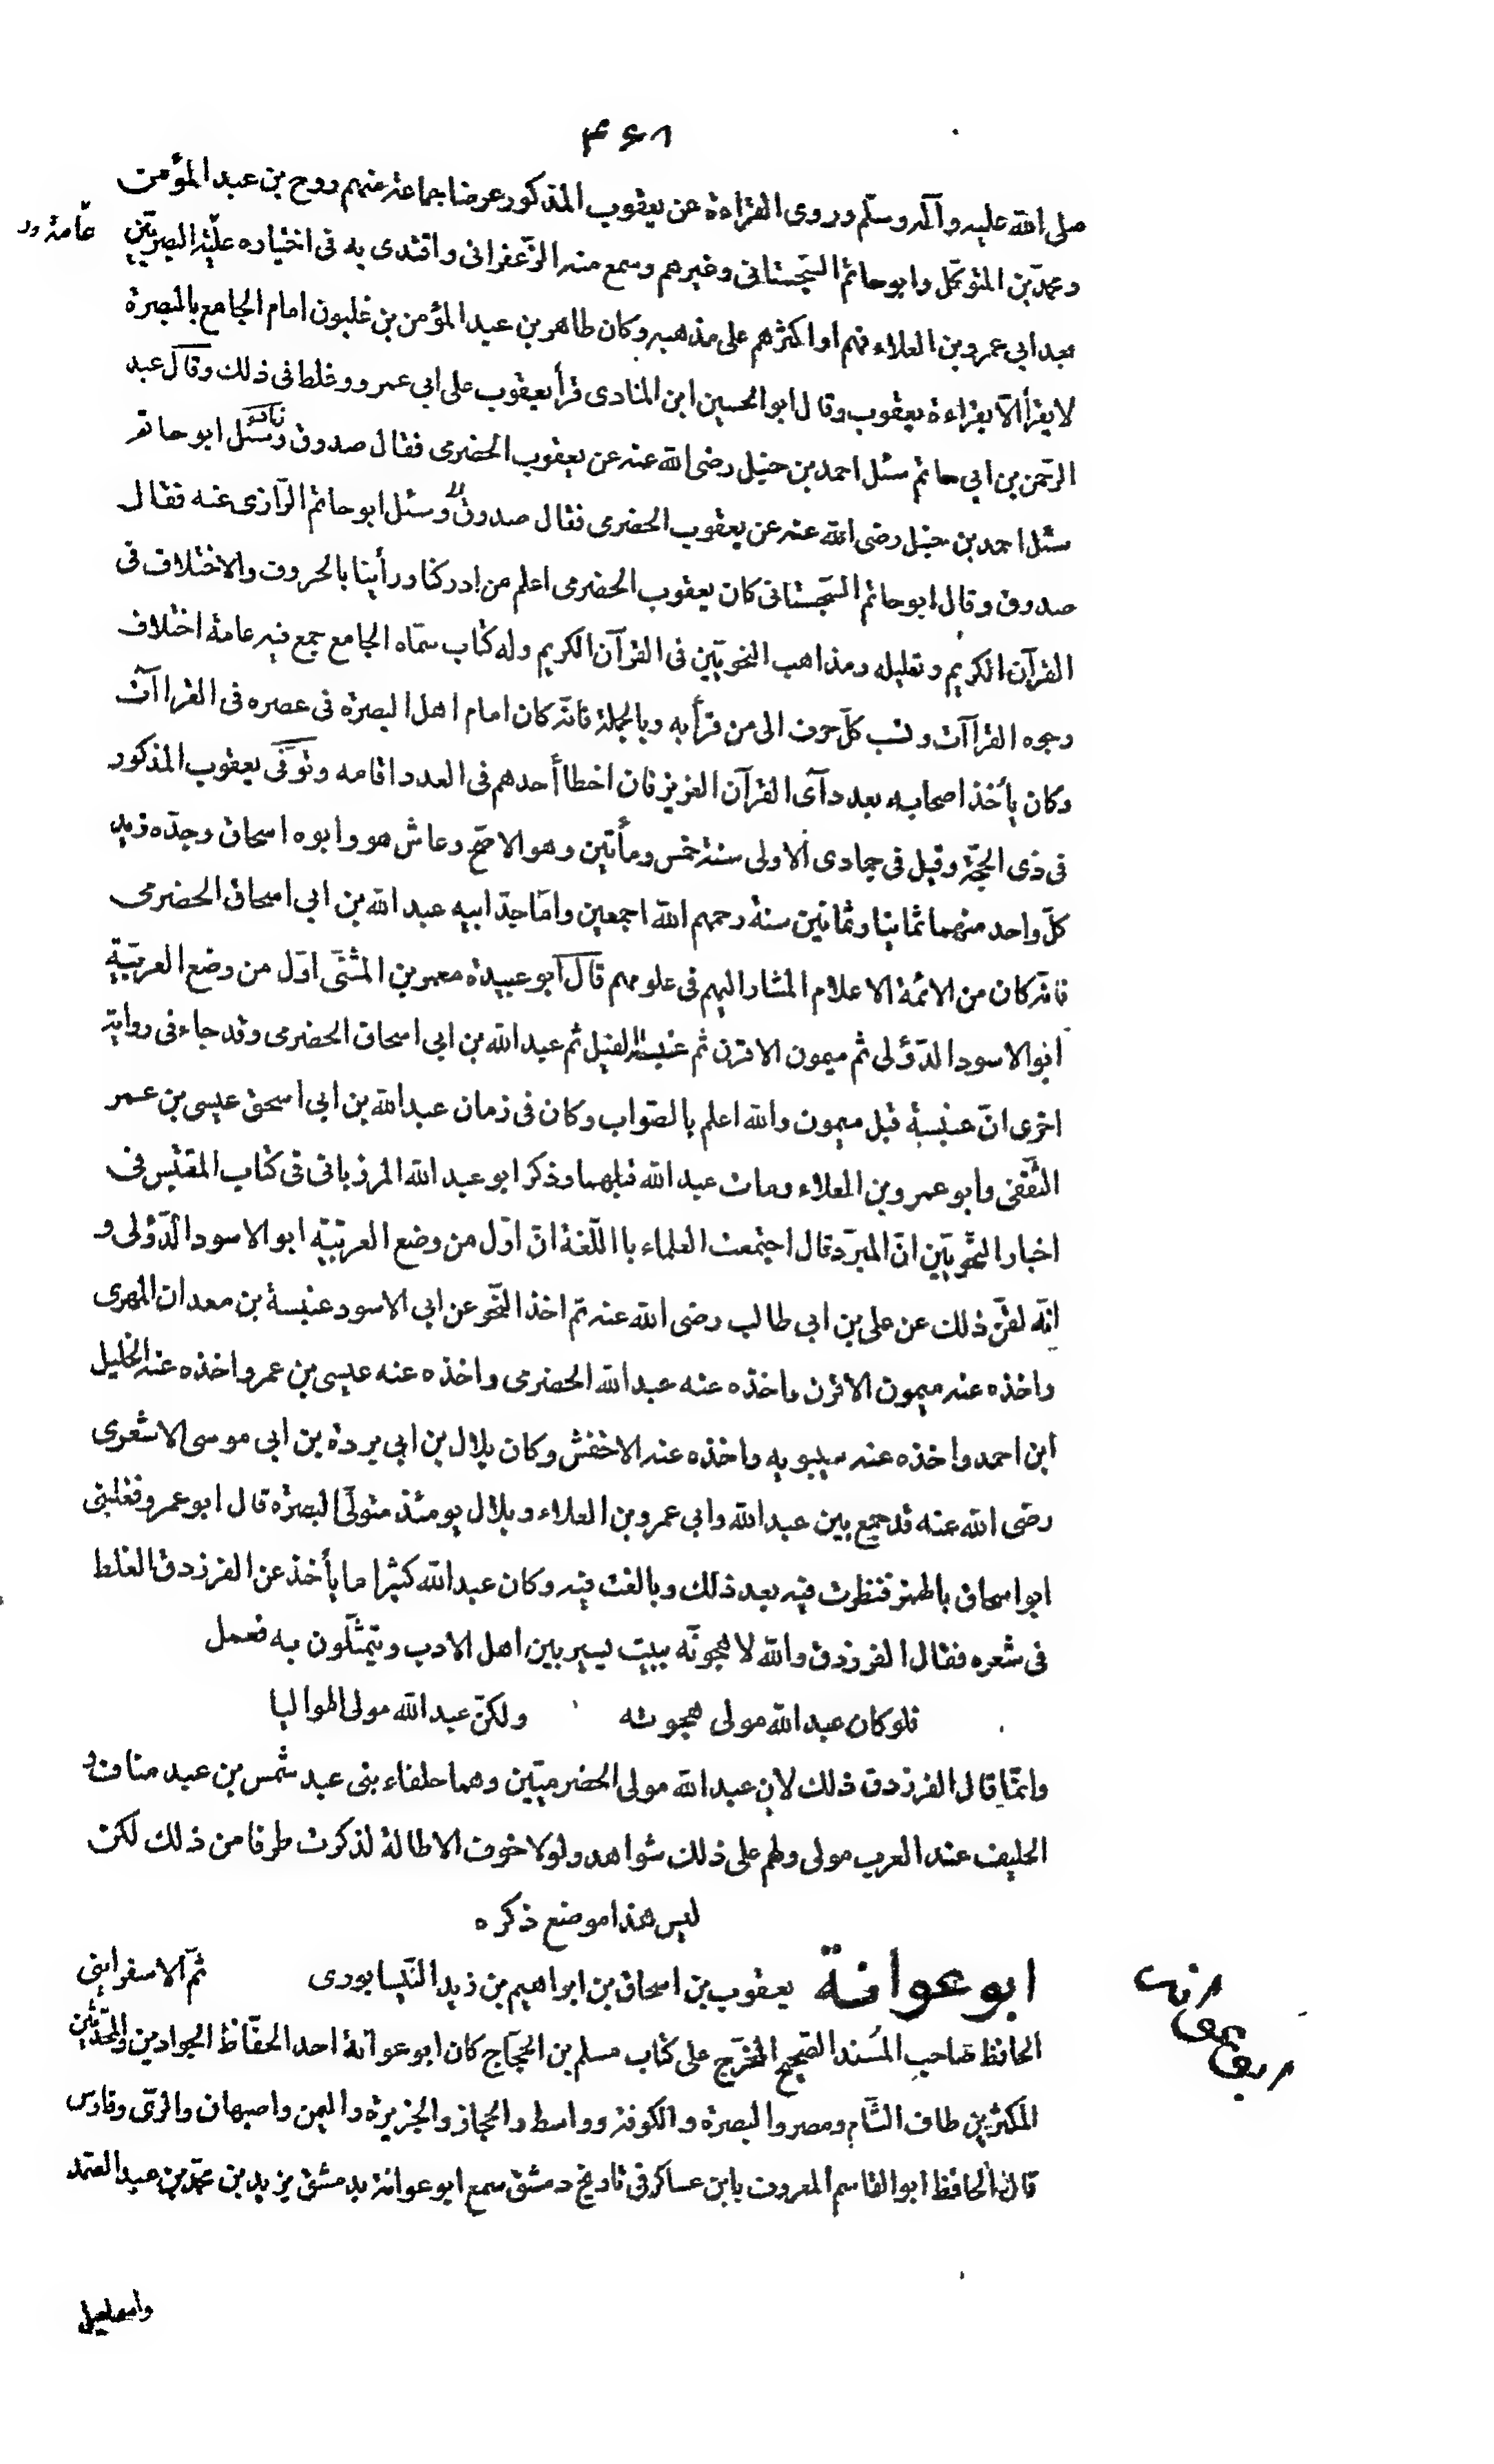 ۴۶۸
صلى الله عليه وآله وسلّم وروى القراءة عن يعقوب المذكور عرضا جماعة منهم روح بن عبد المؤمن
ومحمّد بن المتوكّل وابو حاتم السّجستانى وغيرهم وسمع منه الزّعفرانى واقتدى به فى اختياره عامّة البصريّين
بعد ابى عمرو بن العلاء فهم او اكثرهم على مذهبه وكان طاهر بن عبد المؤمن بن غلبون امام الجامع بالبصرة
لا يقرأ الّا بقراءة يعقوب وقال ابو الحسين ابن المنادى قرأ يعقوب على ابى عمرو وغلط فى ذلك وقال عبد
الرّحمن بن ابى حاتم سئل احمد بن حنبل رضى الله عنه عن يعقوب الحضرمى فقال صدوق وسئل ابو حاتم
سئل احمد بن حنبل رضى الله عنه عن يعقوب الحضرمى فقال صدوق وسئل ابو حاتم الرّازى عنه فقال
صدوق وقال ابو حاتم السّجستانى كان يعقوب الحضرمى اعلم من ادركنا ورأينا بالحروف والاختلاف فى
القرآن الكريم وتعليله ومذاهب النحويّين فى القرآن الكريم وله كتاب سمّاه الجامع جمع فيه عامة اختلاف
وجوه القراآت ونسب كلّ حرف الى من قرأ به وبالجملة فانّه كان امام اهل البصرة فى عصره فى القراآت
وكان يأخذ اصحابه بعدد آى القرآن العزيز فان اخطأ أحدهم فى العدد اقامه وتوفّى يعقوب المذكور
فى ذى الحجّة وقيل فى جمادى الاولى سنة خمس ومأتين وهو الاصحّ وعاش هو وابوه اسحاق وجدّه زيد
كلّ واحد منهما ثمانيا وثمانين سنة رحمهم الله اجمعين وامّا جدّ ابيه عبد الله بن ابى اسحاق الحضرمى
فانّه كان من الائمّة الاعلام المشار اليهم فى علومهم قال ابو عبيدة معمر بن المثنّى اوّل من وضع العربيّة
ابو الاسود الدّؤلى ثم ميمون الاقرن ثم عنبسة الفيل ثم عبد الله بن ابى اسحاق الحضرمى وقد جاء فى رواية
اخرى انّ عنبسة قبل ميمون والله اعلم بالصّواب وكان فى زمان عبد الله بن ابى اسحق عيسى بن عمر
الثّقفى وابو عمرو بن العلاء ومات عبد الله قبلهما وذكر ابو عبد الله المرزبانى فى كتاب المقتبس فى
اخبار النّحويّين انّ المبرّد قال اجتمعت العلماء بااللّغة انّ اوّل من وضع العربيّة ابو الاسود الدّؤلى و
انّه لقّن ذلك عن على بن ابى طالب رضى الله عنه ثم اخذ النّحو عن ابى الاسود عنبسة بن معدان المهرى
واخذه عنه ميمون الاقرن واخذه عنه عبد الله الحضرمى واخذه عنه عيسى بن عمر واخذه عنه الخليل
ابن احمد واخذه عنه سيبويه واخذه عنه الاخفش وكان بلال بن ابى بردة بن ابى موسى الاشعرى
رضى الله عنه قد جمع بين عبد الله وابى عمرو بن العلاء وبلال يومئذ متولّى البصرة قال ابو عمرو فغلبنى
ابو اسحاق بالهمز فنظرت فيه بعد ذلك وبالغت فيه وكان عبد الله كثيرا ما يأخذ عن الفرزدق الغلط
فى شعره فقال الفرزدق والله لاهجونّه ببيت يسير بين اهل الادب ويتمثّلون به فعمل
فلو كان عبد الله مولى هجوته ولكنّ عبد الله مولى المواليا
وانّما قال الفرزدق ذلك لان عبد الله مولى الحضرميّين وهما حلفاء بنى عبد شمس بن عبد مناف و
الحليف عند العرب مولى ولهم على ذلك شواهد ولولا خوف الاطالة لذكرت طرفا من ذلك لكن
ليس هذا موضع ذكره
ابو عوانة يعقوب بن اسحاق بن ابراهيم بن زيد النّيسابورى ثمّ الاسفراينى
ابو عوانه
الحافظ صاحب المسند الصّحيح المخرّج على كتاب مسلم بن الحجّاج كان ابو عوانة احد الحفّاظ الجوادين والمحدّثين
المكثرين طاف الشّام ومصر والبصرة والكوفة وواسط والحجاز والجزيرة واليمن واصبهان والرّى وفارس
قال الحافظ ابو القاسم المعروف بابن عساكر فى تاريخ دمشق سمع ابو عوانة بدمشق يزيد بن محمّد بن عبد الصّمد
واسمعيل